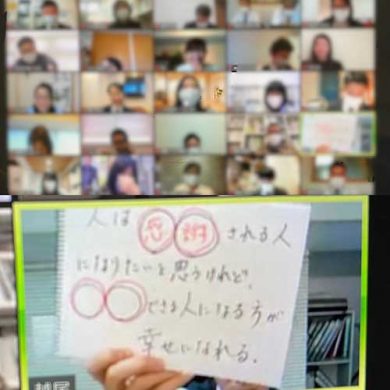 人は感謝される人
になりたいと思うけれど、
○○できる人になる方が
幸せになれる。